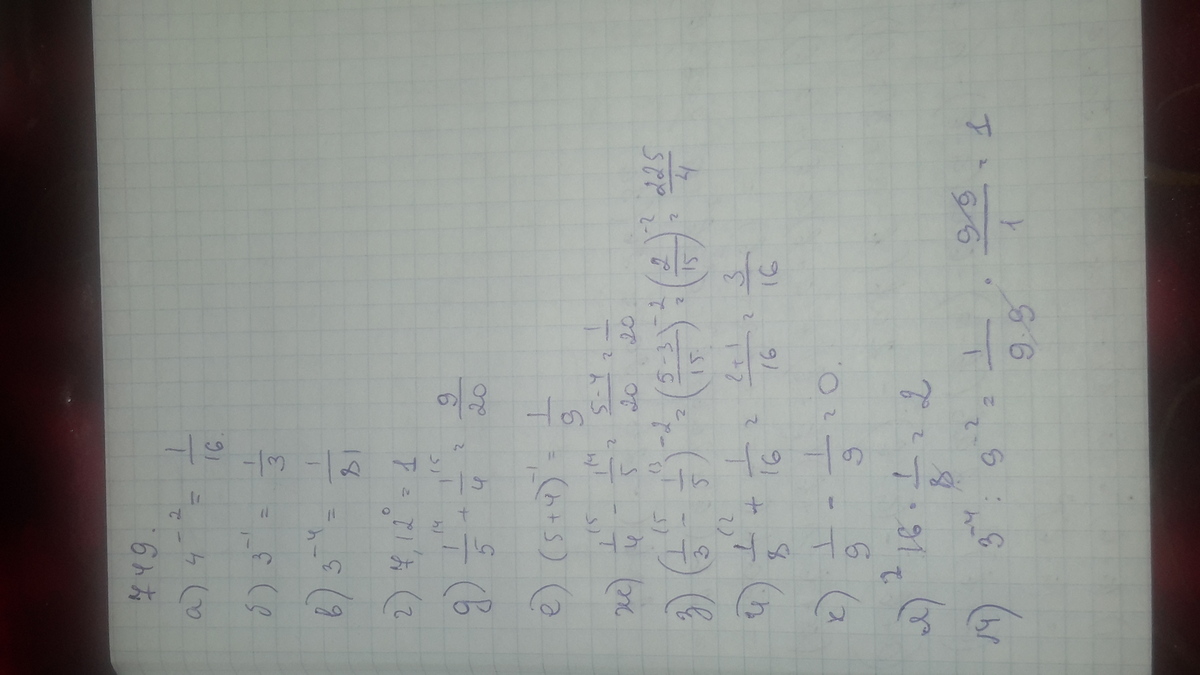 749.
а) 4⁻² = 1/16.
б) 3⁻¹ = 1/3
в) 3⁻⁴ = 1/81
г) 7,12⁰ = 1
д) 1/5 ⁽⁴ + 1/4 ⁽⁵ = 9/20
е) (5+4)⁻¹ = 1/9
ж) 1/4 ⁽⁵ - 1/5 ⁽⁴ = 5-4/20 = 1/20
з) (1/3 ⁽⁵ - 1/5 ⁽³)⁻² = (5-3/15)⁻² = (2/15)⁻² = 225/4
и) 1/8 ⁽² + 1/16 = 2+1/16 = 3/16
к) 1/9 - 1/9 = 0.
л) ²16 · 1/8 = 2
м) 3⁻⁴ : 9⁻² = 1/9·9 · 9·9/1 = 1